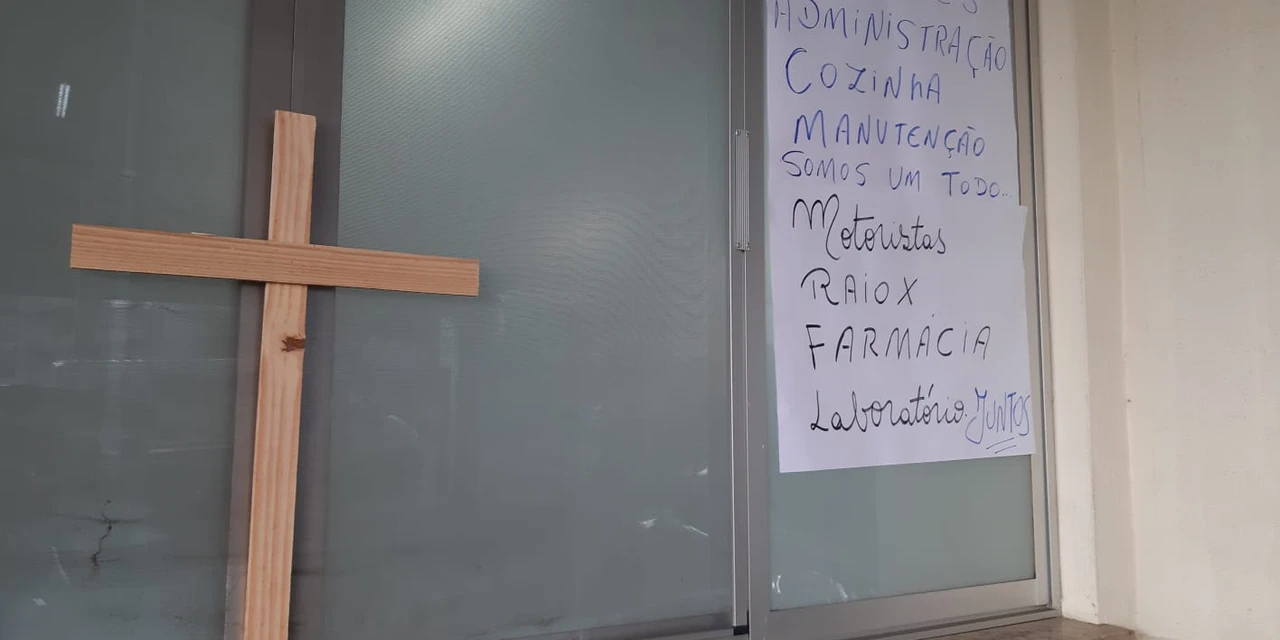 ADMINISTRAÇÃO
COZINHA
MANUTENÇÃO
SOMOS UM TODO...
Motoristas
RAIO X
FARMÁCIA
Laboratório. JUNTOS